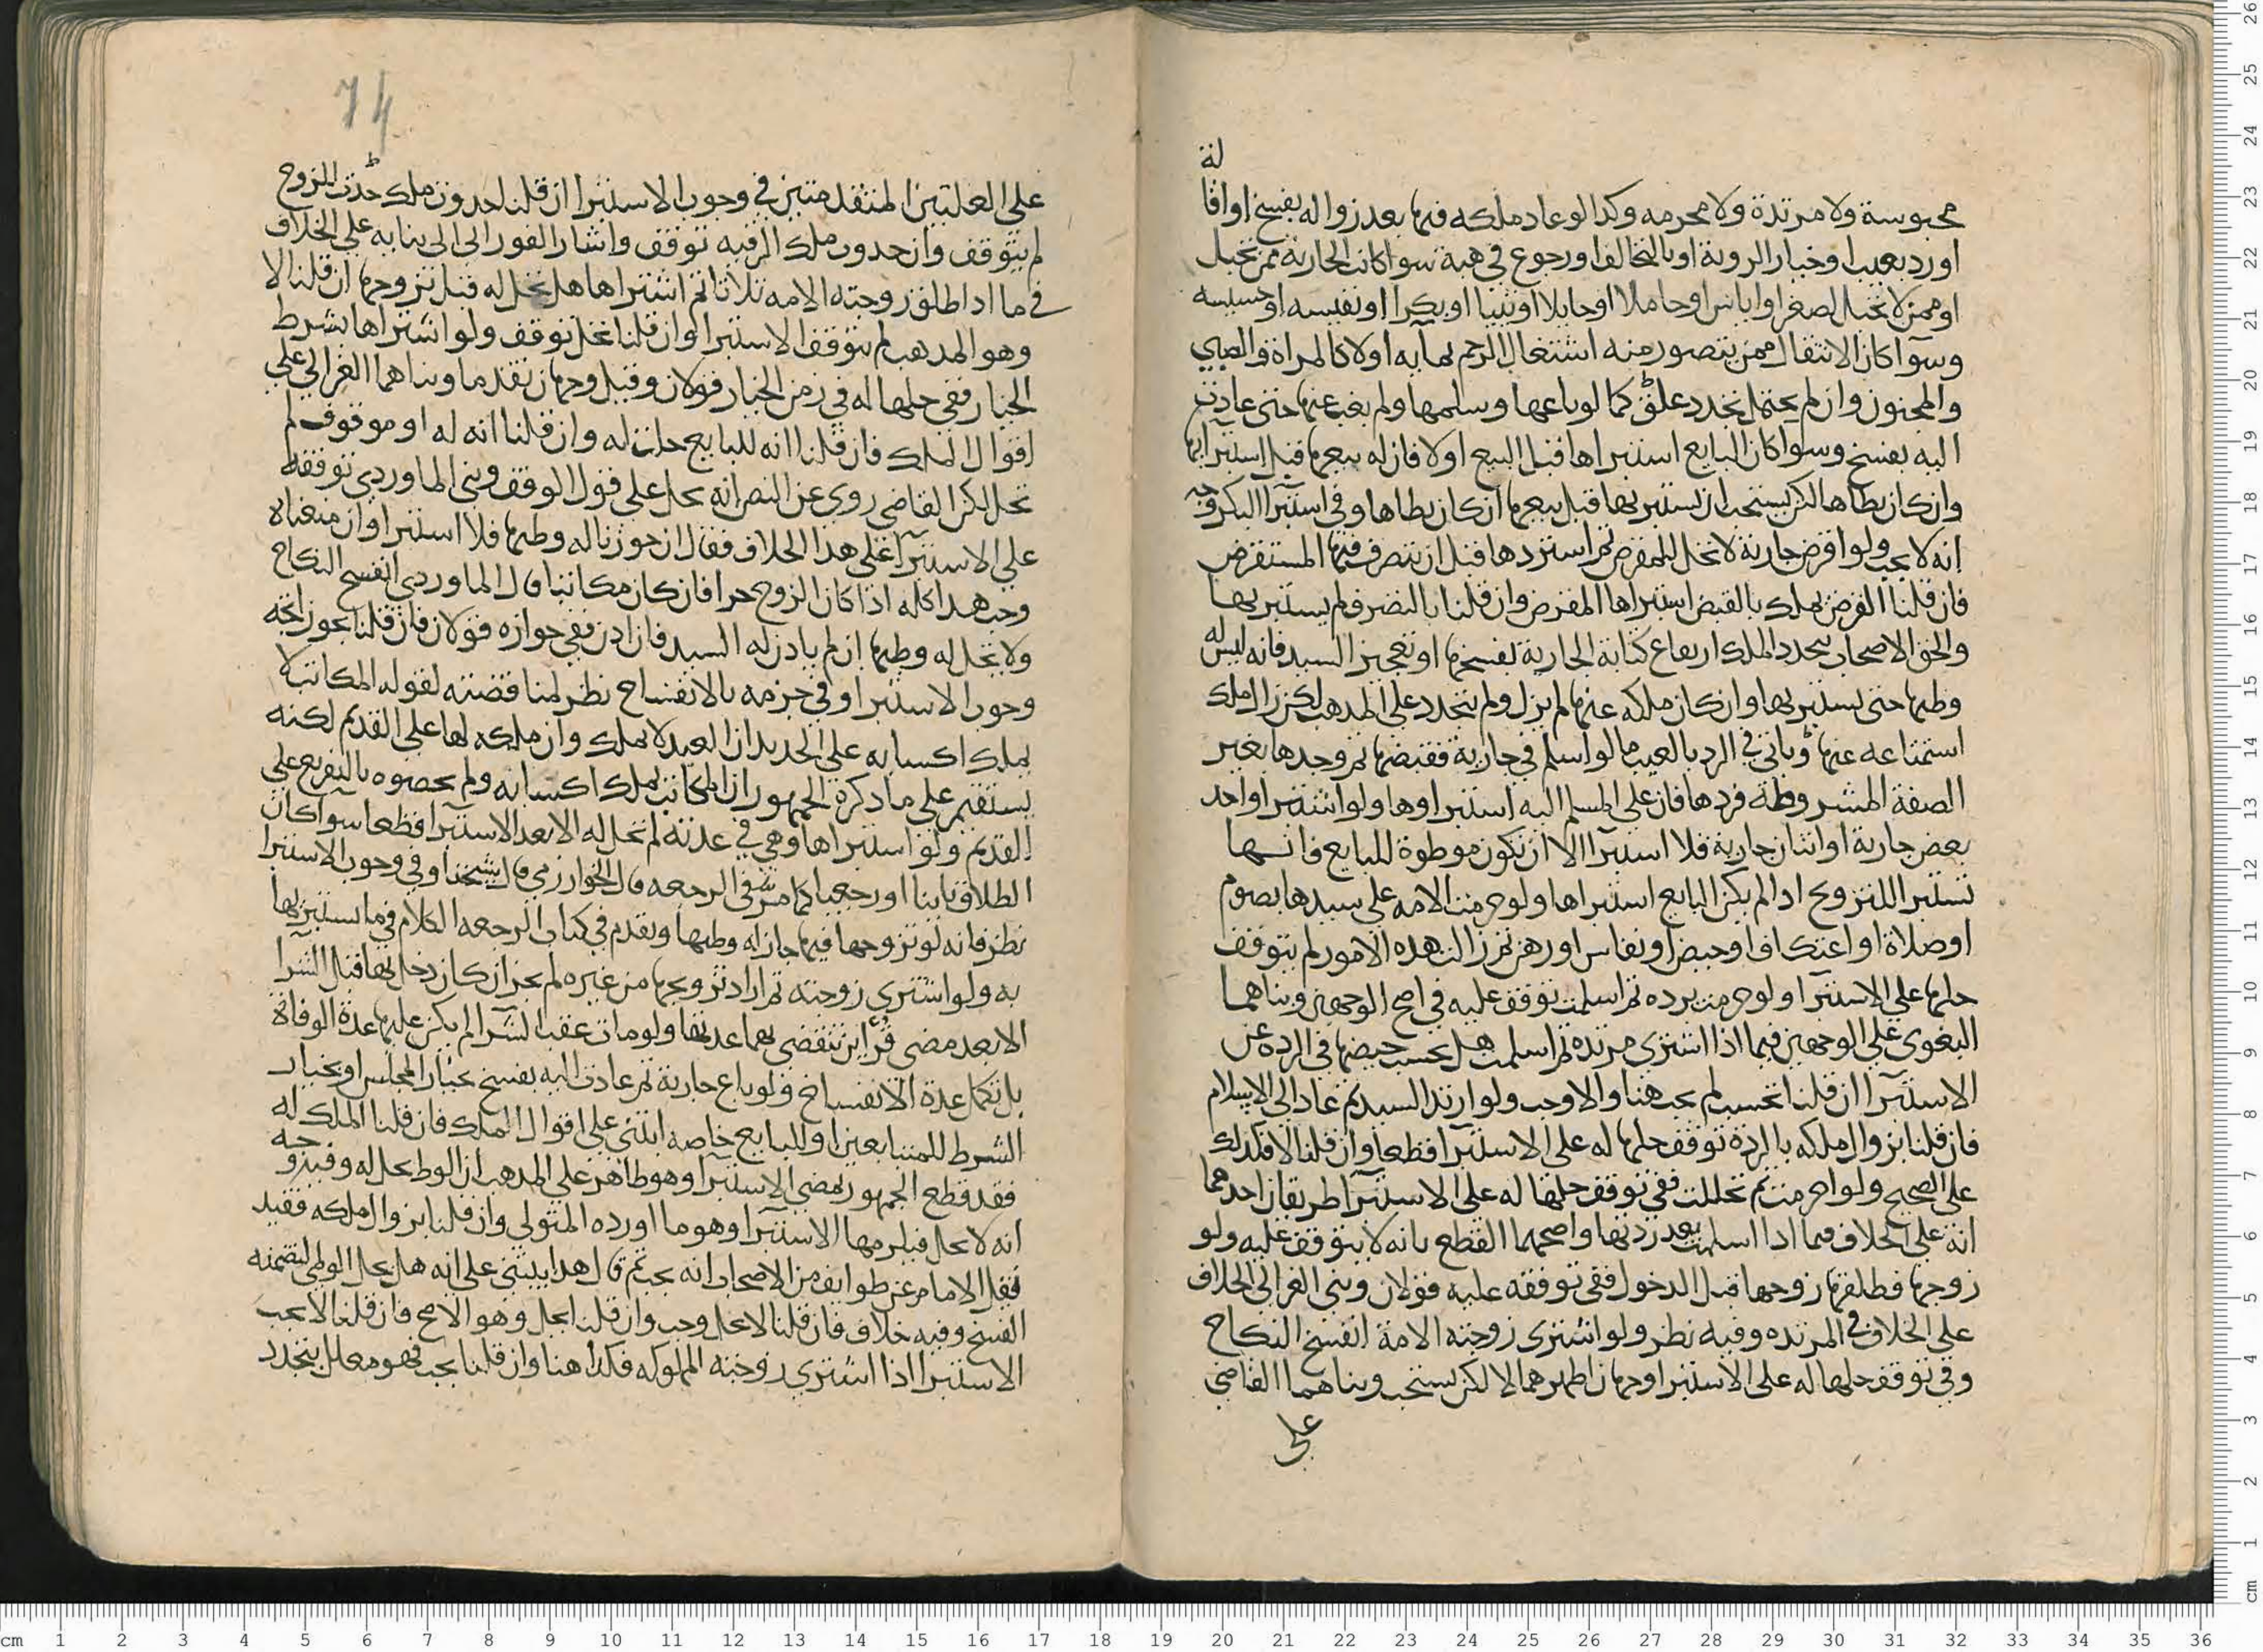 محبوسة ولا مرتدة ولا محرمه وكذا لو عاد ملكه فيها بعد زواله بفسخ او اقا
لة
او رد بعيب او خيار الروية او بالتخالف او رجوع في هبة سوا كانت الجارية ممن تحبل
او ممن لا تحبل لصغر او اياس او حاملا او حايلا او ثيبا او بكرا او نفيسه او خسيسه
وسوآ كان الانتقال ممن يتصور منه اشتغال الرحم بمآيه او لا كالمراة والصبي
والمجنون وان لم يحتمل تجدد علوق كما لو باعها وسلمها ولم يغب عنها حتى عادت
اليه بفسخ وسوا كان البايع استبراها قبل البيع او لا فان له بيعها قبل استبرآيها
وان كان يطاها لكن يستحب ان يستبريها قبل بيعها ان كان يطاها وفي استبرآ البكر وجه
انه لا يجب ولو اقرض جارية لا تحل للمقرض ثم استردها قبل ان يتصرف فيها المستقرض
فان قلنا القرض يملك بالقبض استبراها المقرض وان قلنا بالتصرف لم يستبريها
والحق الاصحاب بتجدد الملك ارتفاع كتابة الجارية بفسخها او تعجيز السيد فانه ليس له
وطيها حتى يستبريها وان كان ملكه عنها لم يزل ولم يتجدد على المذهب لكن زال ملك
استمتاعه عنها وياتي في الرد بالعيب ما لو اسلم في جارية فقبضها ثم وجدها بغير
الصفة المشروطة فردها فان على المسلم اليه استبراوها ولو اشترا واحد
بعض جارية او اثنان جارية فلا استبرآ الا ان تكون موطوة للبايع فانها
تستبرا للتزويج اذا لم يكن البايع استبراها ولو حرمت الامه على سيدها بصوم
او صلاة او اعتكاف او حيض او نفاس او رهن ثم زالت هذه الامور لم يتوقف
حلها على الاستبرآ ولو حرمت برده ثم اسلمت توقف عليه في اصح الوجهين وبناهما
البغوي على الوجهين فيما اذا اشترى مرتده ثم اسلمت هل يحسب حيضها في الرده عن
الاستبرآ ان قلنا تحسب لم يجب هنا والا وجب ولو ارتد السيد ثم عاد الى الاسلام
فان قلنا بزوال ملكه بالردة توقف حلها له على الاستبرآ قطعا وان قلنا لا فكذلك
على الصحيح ولو احرمت ثم تحللت ففي توقف حلها له على الاستبرآ طريقان احدهما
انه على الخلاف فيما اذا اسلمت بعد ردتها واصحهما القطع بانه لا يتوقف عليه ولو
زوجها فطلقها زوجها قبل الدخول ففي توقفه عليه قولان وبنى الغزالي الخلاف
على الخلاف في المرتده وفيه نظر ولو اشترى زوجته الامة انفسخ النكاح
وفي توقف حلها له على الاستبرا وجهان اظهرهما لا لكن يستحب وبناهما القاضي
على
74
على العلتين المتقدمتين في وجوب الاستبرا ان قلنا حدوث ملك حدث المزوج
لم يتوقف وان حدوث ملك الرقبه توقف واشار الفوراني الى بنايه على الخلاف
في ما اذا طلق زوجته الامه ثلاثا ثم اشتراها هل تحل له قبل تزوجها ان قلنا لا
وهو المذهب لم يتوقف الاستبرا وان قلنا تحل توقف ولو اشتراها بشرط
الخيار ففي حلها له في زمن الخيار قولان وقيل وجهان تقدما وبناهما الغزالي على
اقوال الملك فان قلنا انه للبايع حلت له وان قلنا انه له او موقوف لم
تحل لكن القاضي روى عن النص انه تحل على قول الوقف وبنى الماوردي توقفه
على الاستبرآ على هذا الخلاف فقال ان جوزنا له وطيها فلا استبرا وان منعناه
وجب هذا كله اذا كان الزوج حرا فان كان مكاتبا قال الماوردي انفسخ النكاح
ولا تحل له وطيها ان لم ياذن له السيد فان اذن ففي جوازه قولان فان قلنا يجوز اتجه
وجوب الاستبرا وفي جزمه بالانفساخ نظر لمناقضته لقوله المكاتب لا
يملك اكسابه على الجديد ان العبد لا يملك وان ملكه لها على القديم لكنه
يستقيم على ما ذكره الجمهور ان المكاتب يملك اكسابه ولم يخصوه بالتفريع على
القديم ولو استبراها وهي في عدته لم تحل له الا بعد الاستبرآ قطعا سوآ كان
الطلاق باينا او رجعيا كما مر في الرجعه قال الخوارزمي قال شيخنا وفي وجوب الاستبرا
نظر فانه لو تزوجها فيها جاز له وطيها وتقدم في كتاب الرجعه الكلام فيما يستبريها
به ولو اشترى زوجته ثم اراد تزويجها من غيره لم يجز ان كان دخل بها قبل الشرا
الا بعد مضي قرأين تنقضي بهما عدتها ولو مات عقب الشرا لم يكن عليها عدة الوفاة
بل تكمل عدة الانفساخ ولو باع جارية ثم عادت اليه بفسخ بخيار المجلس او بخيار
الشرط للمتبايعين او للبايع خاصه ابتنى على اقوال الملك فان قلنا الملك له
فقد قطع الجمهور بمضي الاستبرآ وهو ظاهر على المذهب ان الوط يحل له وفيه وجه
انه لا يحل فيلزمها الاستبرآ وهو ما اورده المتولي وان قلنا بزوال ملكه فقيد
فقل الامام عن طوايف من الاصحاب انه يجب ثم قال هذا يبتنى على انه هل يحل الوطي لتضمنه
الفسخ وفيه خلاف فان قلنا لا يحل وجب وان قلنا يحل وهو الاصح فان قلنا لا يجب
الاستبرا اذا اشترى زوجته المملوكه فكذا هنا وان قلنا يجب فهو معلل بتجدد